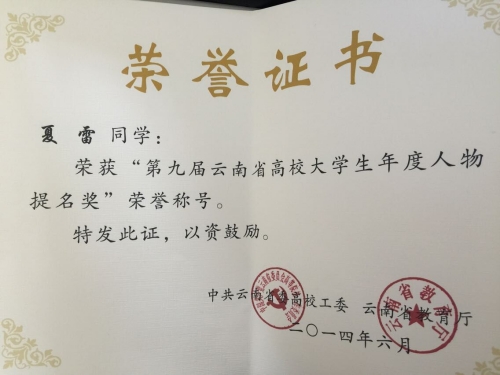 荣誉证书
夏雷同学：
荣获“第九届云南省高校大学生年度人物
提名奖”荣誉称号。
特发此证，以资鼓励。
中共云南省委高校工委 云南省教育厅
云南省教育厅
二〇一四年六月